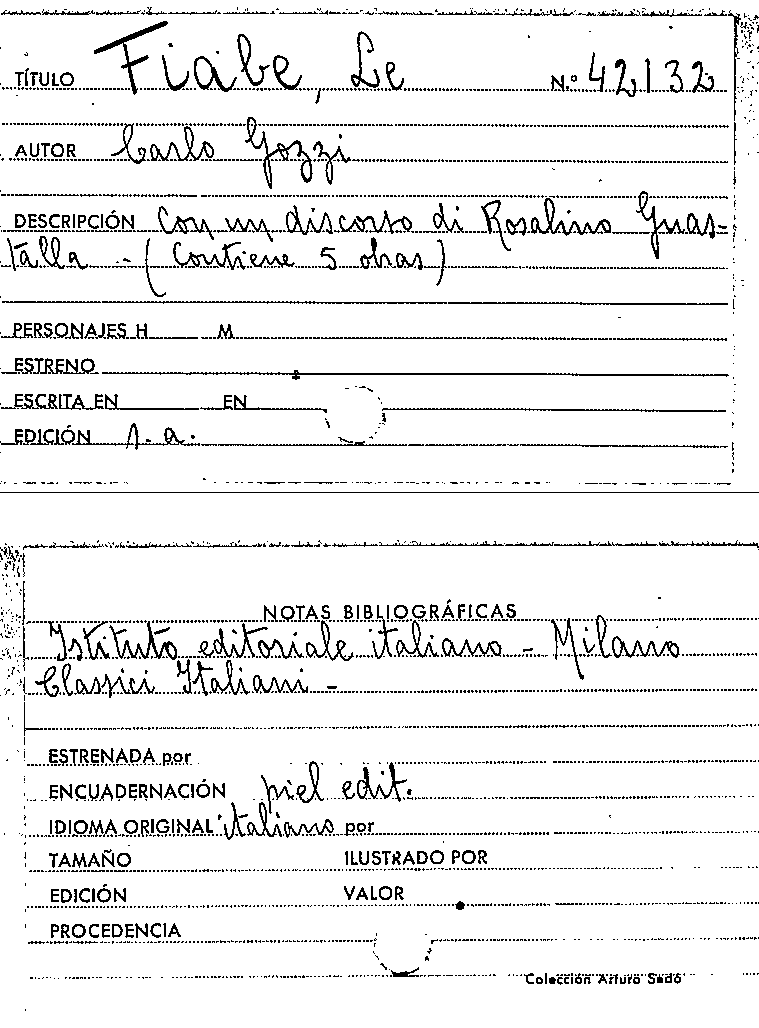 TÍTULO Fiabe, Le N.º 42132
AUTOR Carlo Gozzi
DESCRIPCIÓN Con un discorso di Rosalino Guas-
talla - (Contiene 5 obras)
PERSONAJES H M
ESTRENO
ESCRITA EN EN
EDICIÓN s. a.
NOTAS BIBLIOGRÁFICAS
Istituto editoriale italiano - Milano
Classici Italiani -
ESTRENADA por
ENCUADERNACIÓN piel edit.
IDIOMA ORIGINAL italiano por
TAMAÑO ILUSTRADO POR
EDICIÓN VALOR
PROCEDENCIA
Colección Arturo Sedó